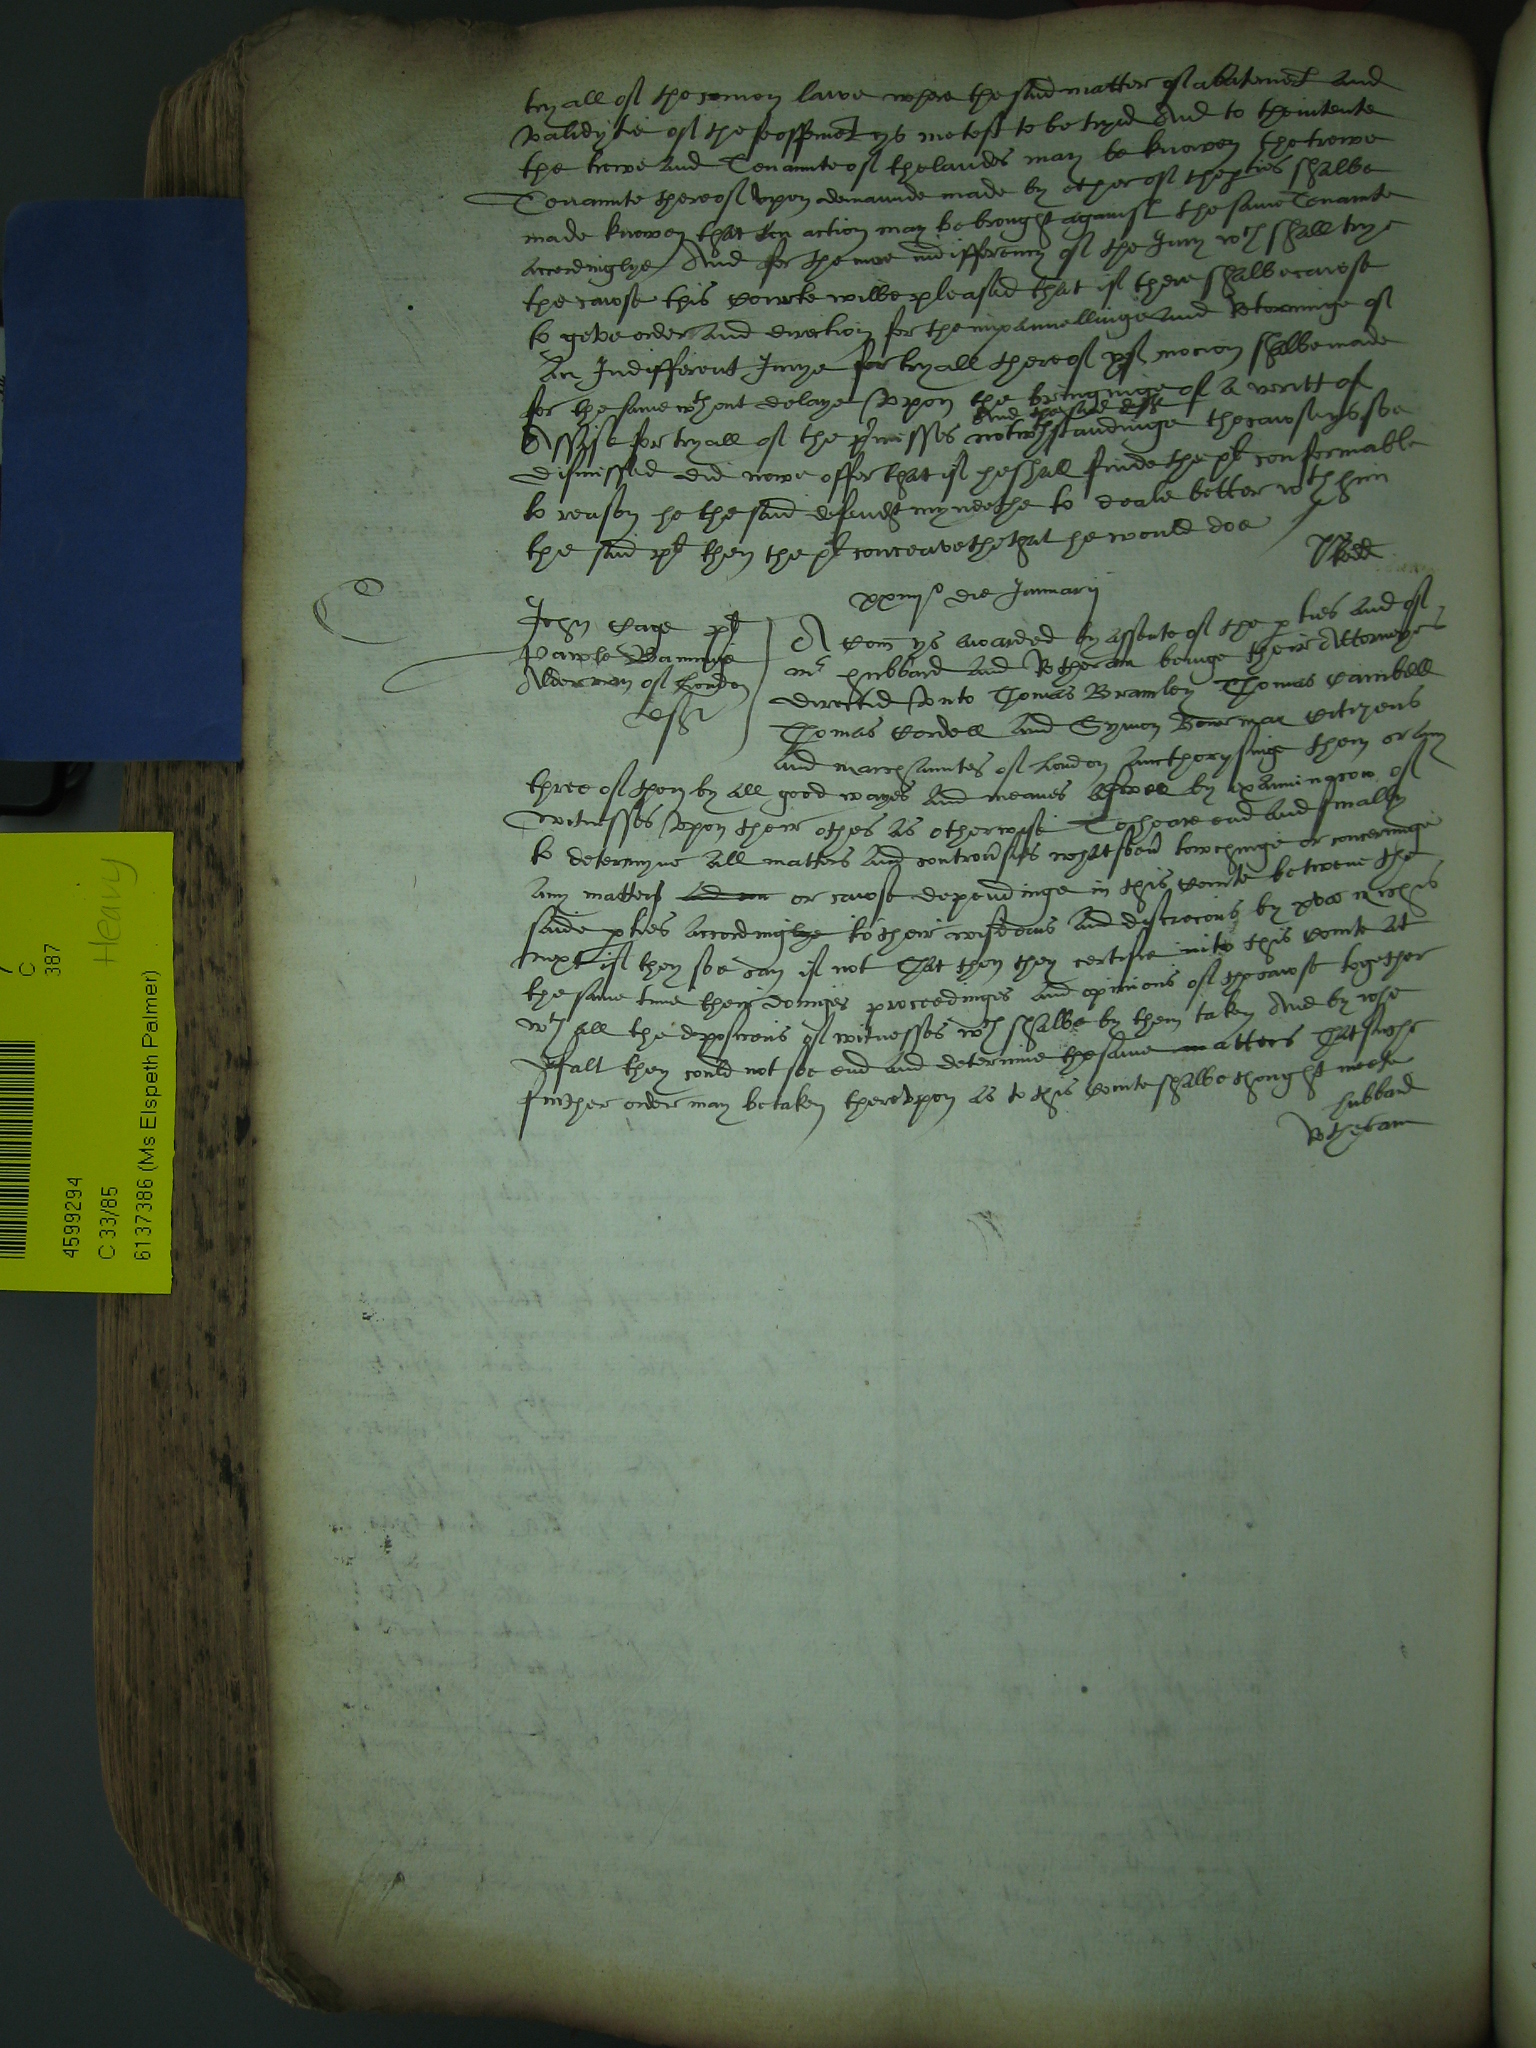 tryall of the comon lawe where the said matter of abatemt and
validytie of the feoffemt ys metest to be tryed And to thintente
the trewe and Tenannte of the landes may be knowen the trewe
Tenannte thereof upon demaunde made by ether of the pties shalbe
made knowen that an action may be brought against the same Tenannte
accordinglye And for the more indifferency of the Jury wch shall trye
the cause this Courte wilbe pleased that if there shalbe cawse
to geve order and direction for the impannellinge and Retorninge of
An Indifferent Jurye for tryall thereof yf mocion shalbe made
for the same wthout delaye upon the bringinge of a writt of
Assise for tryall of the pmisses notwthstandinge the cause ys soe
And the said deft
dismissed did nowe offer that if he shall finde the pl conformable
to reason he the said defendt myndethe to deale better wth him
the said pl then the pl conceavethe that he would doe
xxiiijo die Januarij
John Cage pl
Pawle Banninge
Alderman of London
deft
A Com ys awarded by assente of the pties and of
mr Hubbard and Rotheram beinge their Attorneyes
directed unto Thomas Bramley Thomas Cambell
Thomas Cordell and Symon Bowrman Citizens
and marchauntes of London aucthorysinge them or any
three of them by all good wayes and meanes aswell by examinacon of
witnesses upon their othes as otherwise To heare end and finally
to determyne all matters and controusies whatsoeu towchinge or concerninge
any matters or cause dependinge in this Courte betwene the
saide pties accordinge to their wisdoms and discrecons by xvos
next if they soe can if not That then they certifie into this Courte at
the same time their doinges proceedinges and opinions of the cause together
wth all the deposicons of witnesses wch shalbe by them taken And by whose
defalt they could not soe end and determine the same matters That suche
further order may be taken thereupon as to this Courte shalbe thought meete
Hubbard
Rotheram
C
387
Heavy
4599294
C 33/85
6137386 (Ms Elspeth Palmer)